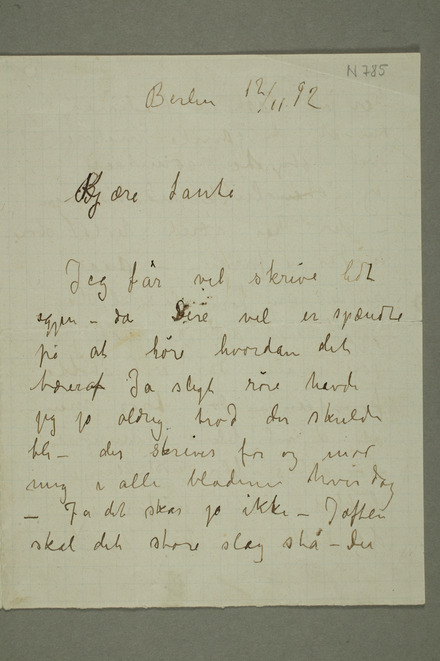 N 785
Berlin 12/11 92
Kjære Tante
Jeg får vel skrive lidt
igjen – da Dere vel er spændte
på at höre hvordan det
bærer af Ja sligt röre havde
jeg jo aldrig trod der skulde
bli – der skrives for og mod
mig i alle bladene hver dag
– Ja det skar jo ikke – I aften
skal det store slag stå – Der